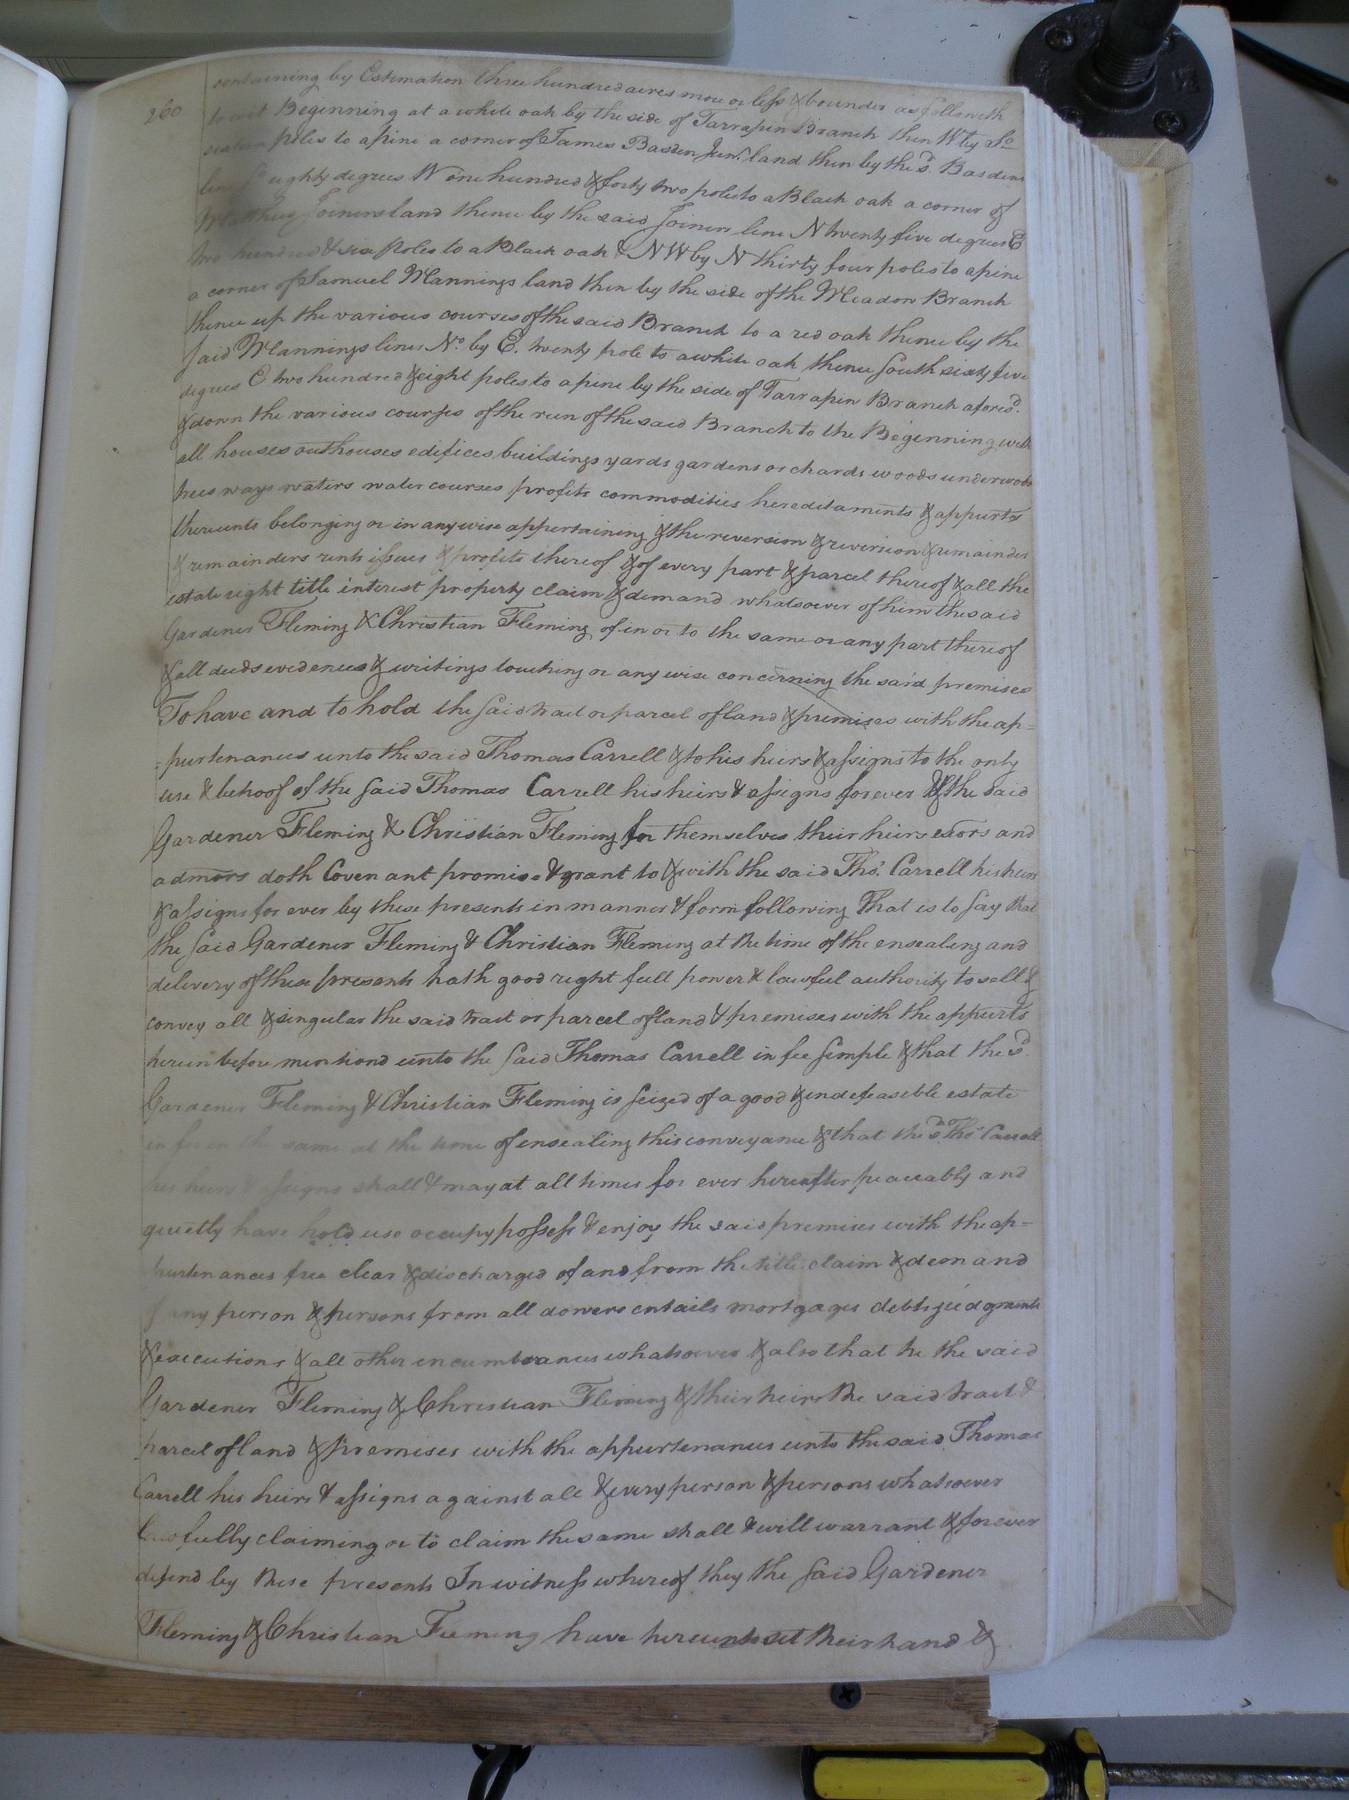 260
containing by Estimation three hundred acres more or less & bounded as followeth
to wit Beginning at a white oak by the side of Tarrapin Branch then W by So
sixteen poles to a pine a corner of James Basden Junr. land then by the sd. Basdens
line So eighty degrees W one hundred & forty two poles to a Black oak a corner of
Matthew Joiners land thence by the said Joiners line N twenty five degrees E
two hundred & six poles to a Black oak & N W by N thirty four poles to a pine
a corner of Samuel Mannings land then by the side of the Meadow Branch
thence up the various courses of the said Branch to a red oak thence by the
said Mannings lines No. by E. twenty pole to a white oak thence South sixty five
degrees E two hundred & eight poles to a pine by the side of Tarrapin Branch aforesd.
& down the various courses of the run of the said Branch to the Beginning with
all houses outhouses edifices buildings yards gardens orchards woods underwoods
trees ways waters water courses profits commodities hereditaments & appurts
thereunto belonging or in any wise appertaining & the reversion & reversion & remainder
& remainders rents issues & profits thereof & of every part & parcel thereof & all the
estate right title interest property claim & demand whatsoever of him the said
Gardener Fleming & Christian Fleming of in or to the same or any part thereof
& all deeds evidences & writings touching or any wise concerning the said premises
To have and to hold the said tract or parcel of land & premises with the ap=
=purtenances unto the said Thomas Carrell & to his heirs & assigns to the only
use & behoof of the said Thomas Carrell his heirs & assigns forever & the said
Gardener Fleming & Christian Fleming for themselves their heirs exors and
admors doth Covenant promise & grant to & with the said Thos. Carrell his heirs
& assigns for ever by these presents in manner & form following That is to say that
the said Gardener Fleming & Christian Fleming at the time of the ensealing and
delivery of these presents hath good right full power & lawful authority to sell &
convey all & singular the said tract or parcel of land & premises with the appurts
herein before mentiond unto the said Thomas Carrell in fee simple & that the sd.
Gardener Fleming & Christian Fleming is seized of a good & indefeasible estate
in fee in the same at the time of ensealing this conveyance & that the sd. Thos Carrell
his heirs & assigns shall & may at all times for ever hereafter peaceably and
quietly have hold use occupy possess & enjoy the said premises with the ap=
purtenances free clear & discharged of and from the title claim & demand
of any person & persons from all dowers entails mortgages debts judgments
& executions & all other encumbrances whatsoever & also that he the said
Gardener Fleming & Christian Fleming & their heirs the said tract &
parcel of land & premises with the appurtenances unto the said Thomas
Carrell his heirs & assigns against all & every person & persons whatsoever
lawfully claiming or to claim the same shall & will warrant & forever
defend by these presents In witness whereof they the said Gardener
Fleming & Christian Fleming have hereunto set their hand &